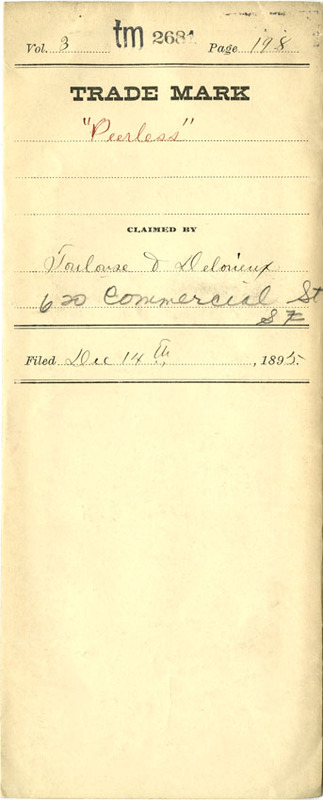 Vol. 3 tm 2681 Page 198
TRADE MARK
"Peerless"
CLAIMED BY
Toulouse & Delorieux
620 Commercial St
SF
Filed Dec 14th, 1895.